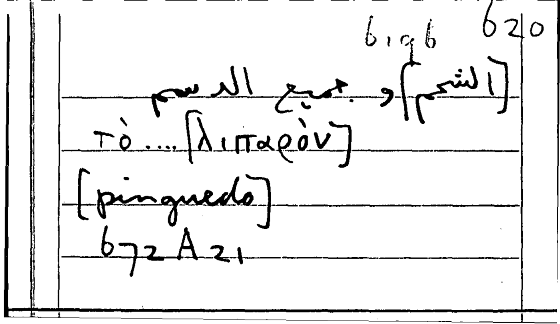 620
6196
[الشحم] و جميع الدسم
τὸ .... [λιπαρὸν]
[pinguedo]
672 A 21